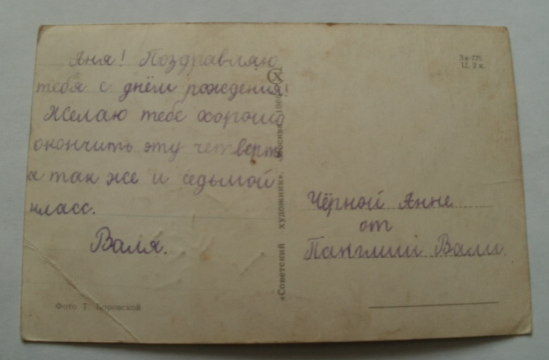 Аня! Поздравляю
тебя с днём рождения!
Желаю тебе хорошо
окончить эту четверть
а так же и седьмой
класс.
Валя.
Фото Т. Боровской
«Советский художник» Москва
12. Ц к.
Чёрной Анне
от
Вали.